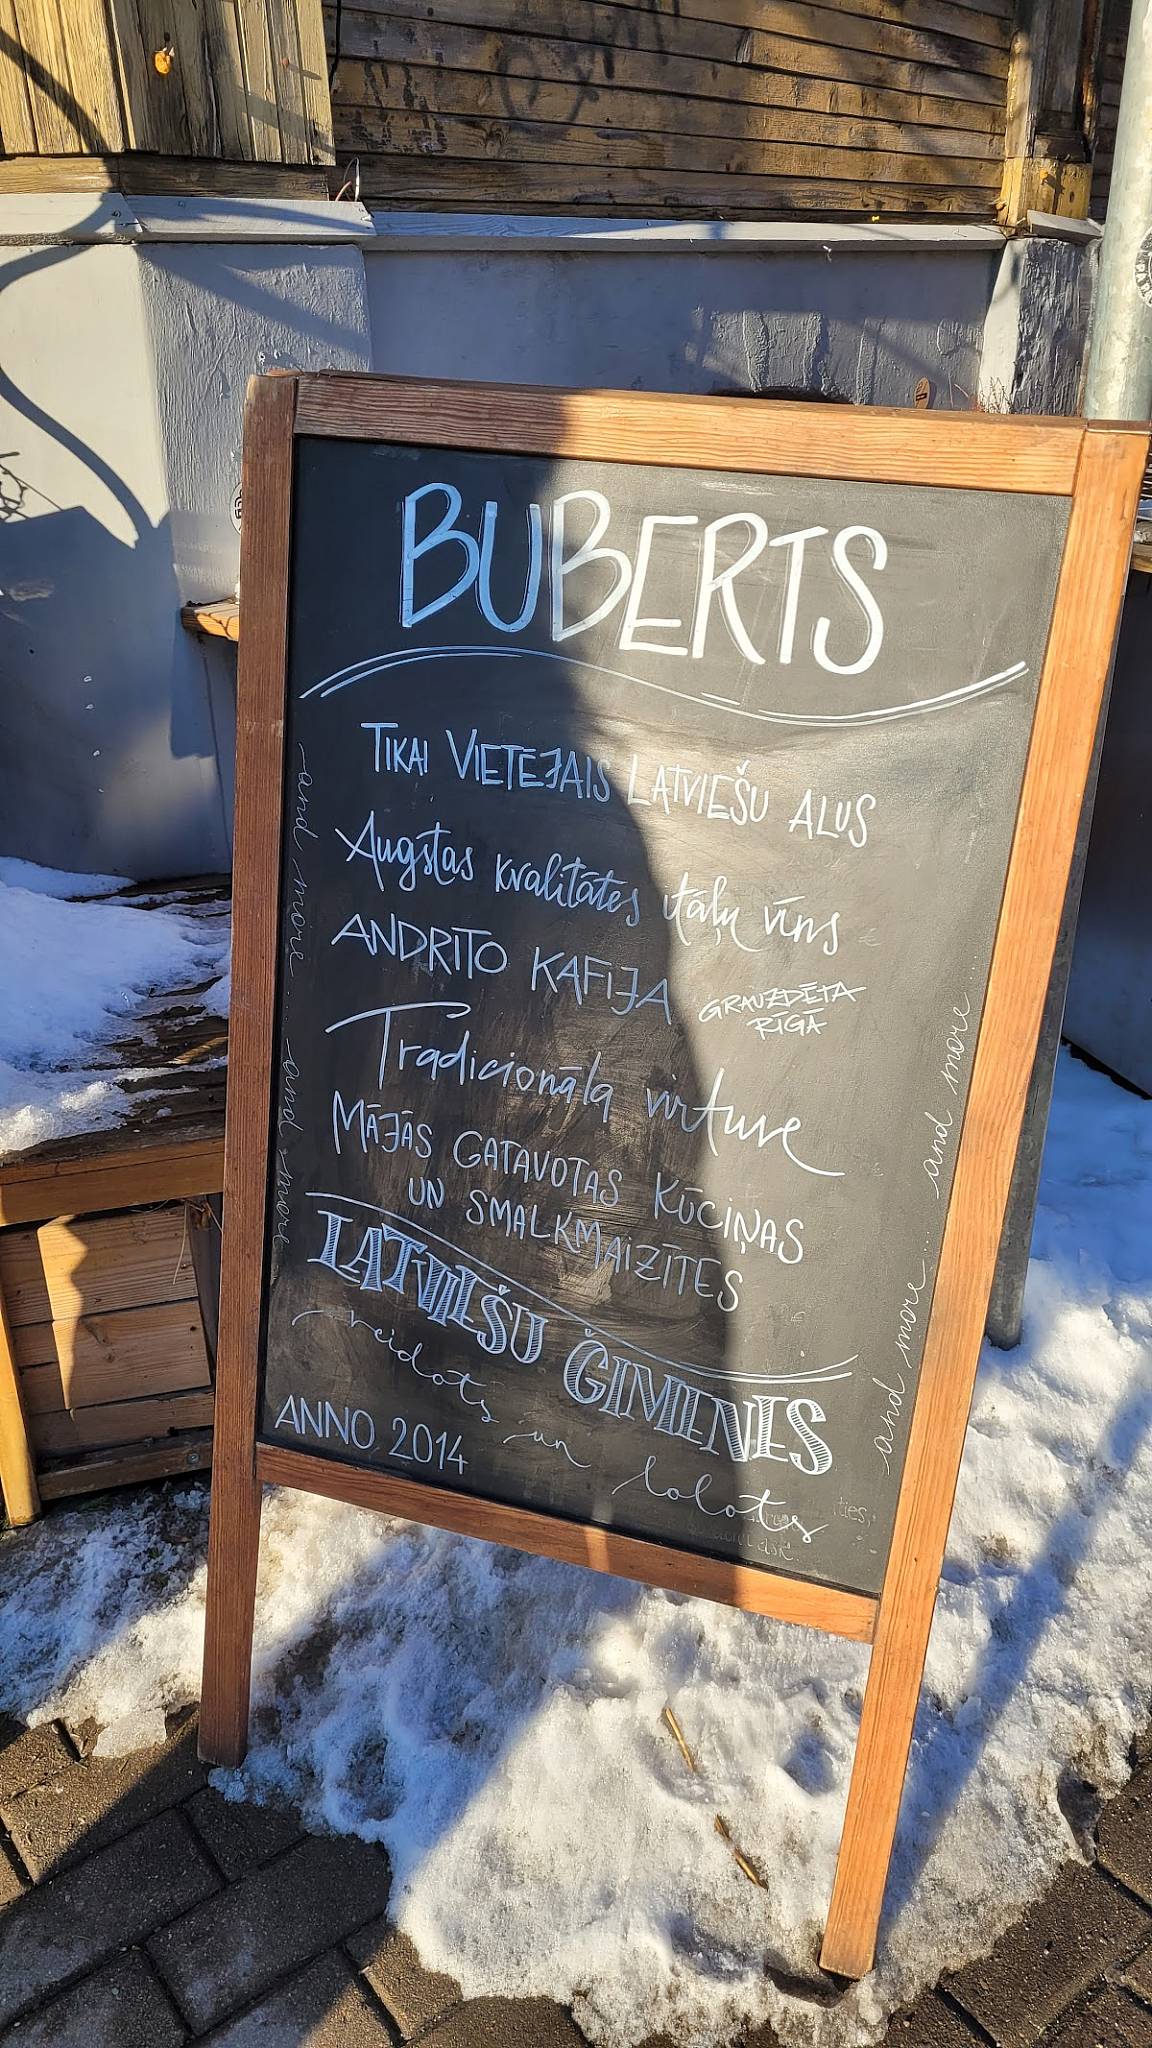 BUBERTS
TIKAI VIETĒJAIS LATVIEŠU ALUS
Augstas kvalitātes itāļu vīns
ANDRITO KAFIJA GRAUZDĒTA
RĪGĀ
Tradicionāla virtuve
MĀJĀS GATAVOTAS KŪCIŅAS
UN SMALKMAIZĪTES
LATVIEŠU ĢIMENES
veidots un lolots
ANNO 2014
and more... and more
and more.... and more....